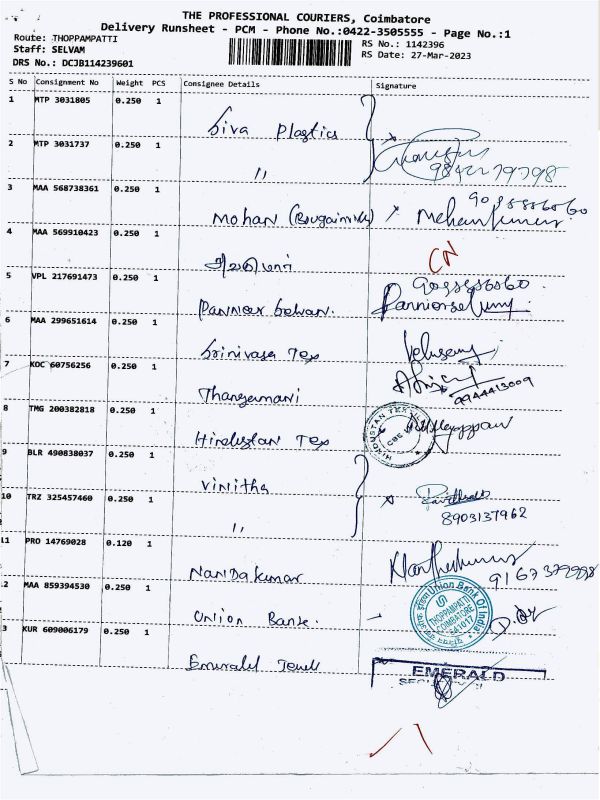 THE PROFESSIONAL COURIERS, Coimbatore
Delivery Runsheet - PCM - Phone No.:0422-3505555 - Page No.:1
Route: THOPPAMPATTI
Staff: SELVAM
DRS No.: DCJB114239601
RS No.: 1142396
RS Date: 27-Mar-2023
S No Consignment No Weight PCS Consignee Details Signature
1 MTP 3031805 0.250 1 Siva Plastics
2 MTP 3031737 0.250 1 "
3 MAA 568738361 0.250 1 Mohan
4 MAA 569910423 0.250 1 CN
5 VPL 217691473 0.250 1 Panneer Selvan.
6 MAA 299651614 0.250 1 Srinivasa Tex
7 KOC 60756256 0.250 1 Thangamani
9944413009
8 TMG 200382818 0.250 1 Hindustan Tex
HINDUSTAN TEX
9 BLR 490838037 0.250 1 Vinitha
10 TRZ 325457460 0.250 1 "
8903137962
11 PRO 14769028 0.120 1 Nandakumar
2 MAA 859394530 0.250 1 Union Bank.
Union Bank Of India
THOPPAMPATTI
COIMBATORE
3 KUR 609006179 0.250 1 Emerald Jewell
EMERALD